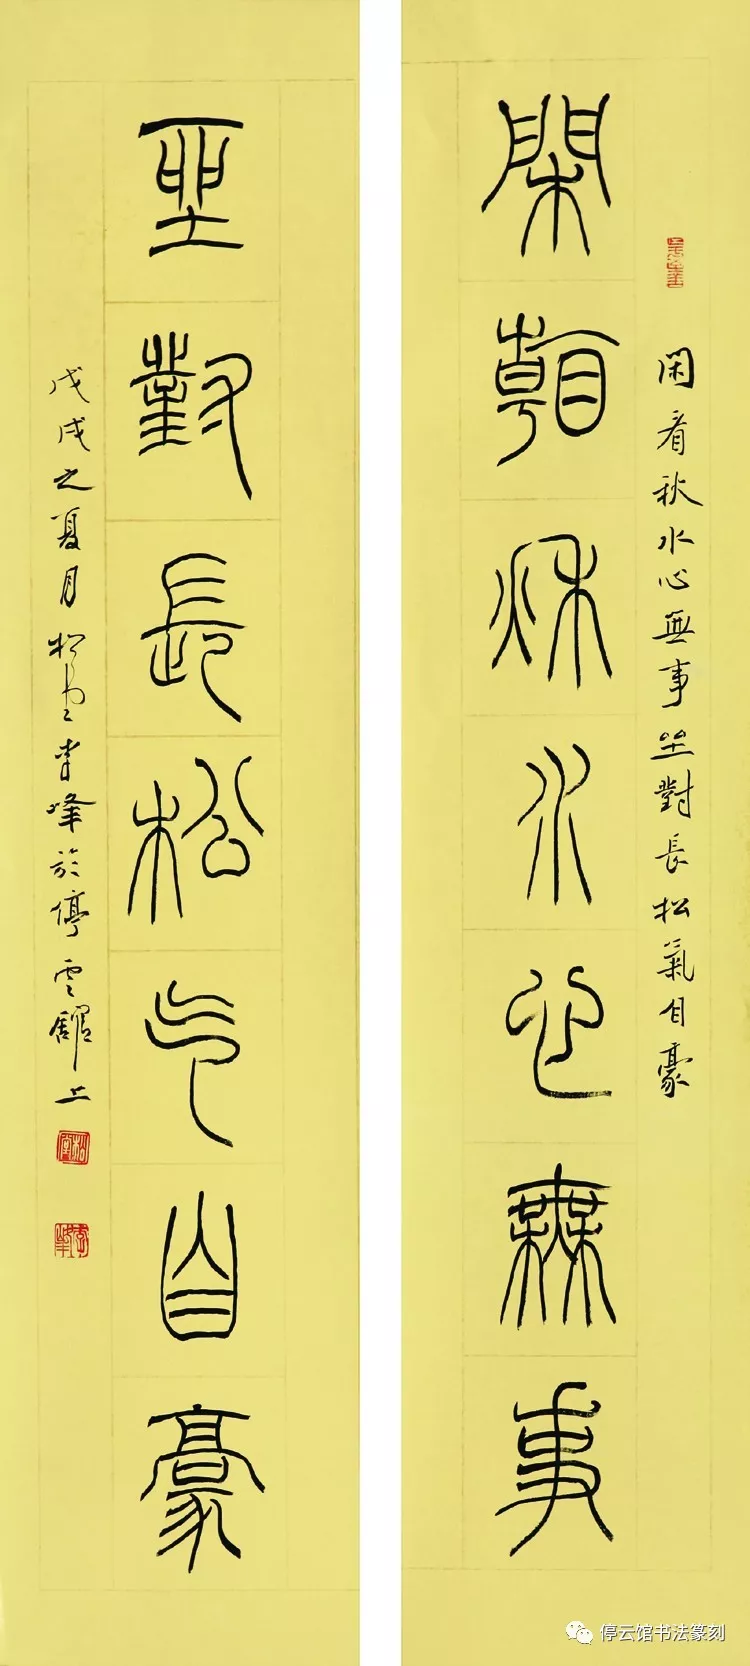 閑看秋水心無事坐對長松氣自豪
閑看秋水心無事
坐對長松气自豪
戊戌之夏月松堂李峰於停雲館上
松堂
李峰
停云馆书法篆刻